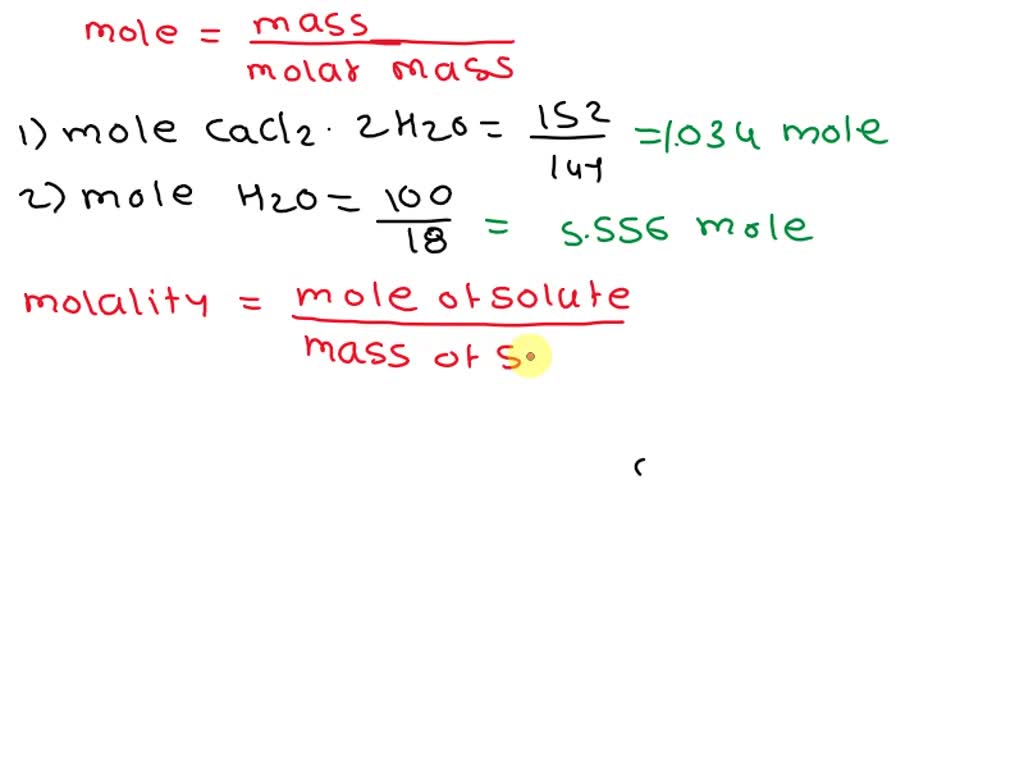 mole = mass / molar mass
1) mole CaCl2 . 2H2O = 152 / 147 = 1.034 mole
2) mole H2O = 100 / 18 = 5.556 mole
molality = mole of solute / mass of s